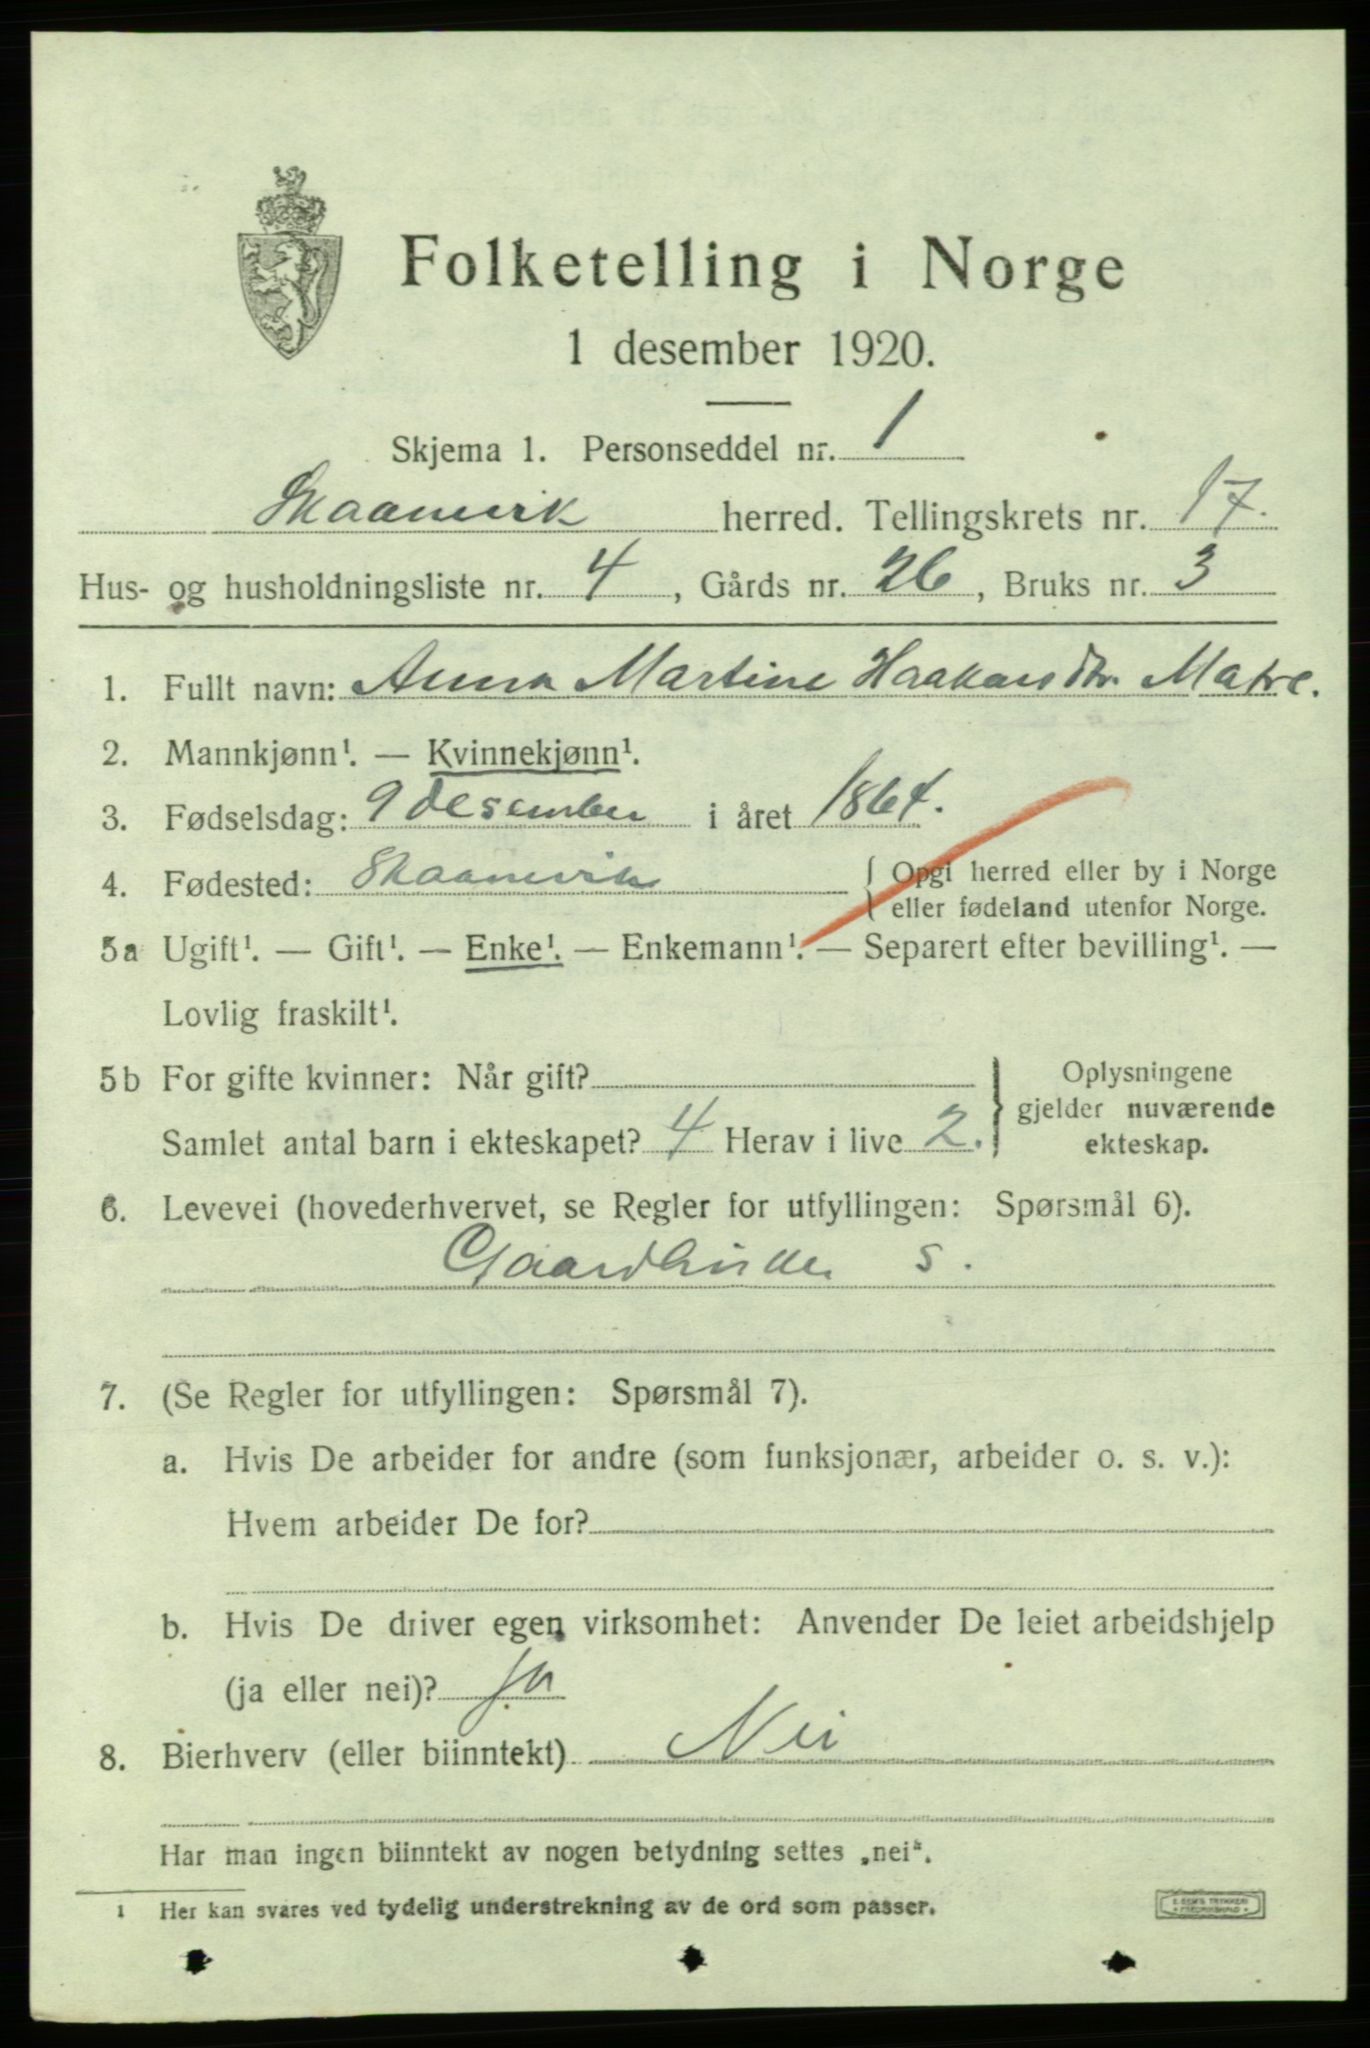 Folketelling i Norge
1 desember 1920.
Skjema 1. Personseddel nr. 1
Skaanevik herred. Tellingskrets nr. 17.
Hus- og husholdningsliste nr. 4, Gårds nr. 26, Bruks nr. 3
1. Fullt navn: Anna Martine Haakansdtr. Matre.
2. Mannkjønn¹. — Kvinnekjønn¹.
3. Fødselsdag: 9 desember i året 1864.
4. Fødested: Skaanevik { Opgi herred eller by i Norge
eller fødeland utenfor Norge.
5a Ugift¹. — Gift¹. — Enke¹. — Enkemann¹. — Separert efter bevilling¹. —
Lovlig fraskilt¹.
5b For gifte kvinner: Når gift? Oplysningene
gjelder nuværende
Samlet antal barn i ekteskapet? 4 Herav i live 2. ekteskap.
6. Levevei (hovederhvervet, se Regler for utfyllingen: Spørsmål 6).
Gaardbruker s.
7. (Se Regler for utfyllingen: Spørsmål 7).
a. Hvis De arbeider for andre (som funksjonær, arbeider o. s. v.):
Hvem arbeider De for?
b. Hvis De driver egen virksomhet: Anvender De leiet arbeidshjelp
(ja eller nei)? Ja
8. Bierhverv (eller biinntekt) Nei
Har man ingen biinntekt av nogen betydning settes „nei“.
1 Her kan svares ved tydelig understrekning av de ord som passer.